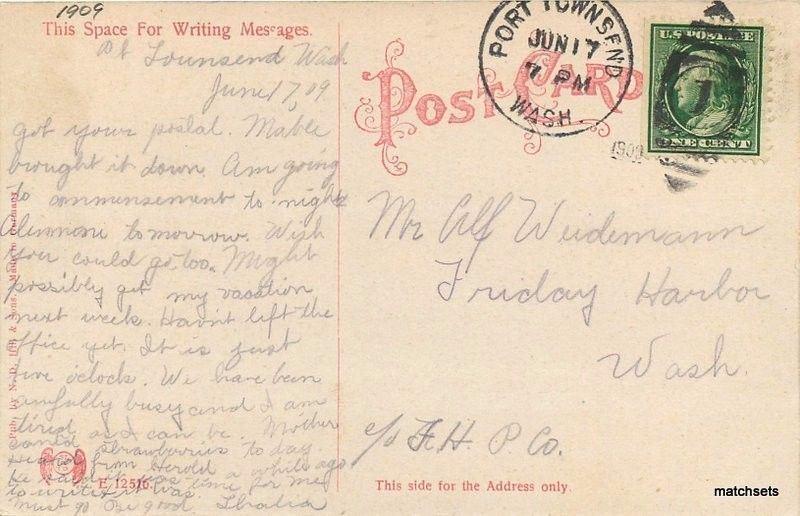 1909
This Space For Writing Messages.
Pt Townsend Wash
June 17, 09
got your postal. Mable
brought it down. Am going
to commensement to-night
tomorrow. Wish
you could go too. Might
possibly get my vacation
next week. Havn't left the
office yet. It is just
five o'clock. We have been
awfully busy and I am
tired as can be. Mother
canned strawberries to day.
from Herold a while ago
he said it was time for me
to write
must go Be good. Thalia
E 12516.
POST CARD
PORT TOWNSEND
JUN 17
7 PM
WASH.
1909
U.S. POSTAGE
ONE CENT
Mr Alf Weidemann
Friday Harbor
Wash.
c/o F. H. P Co.
This side for the Address only.
matchsets